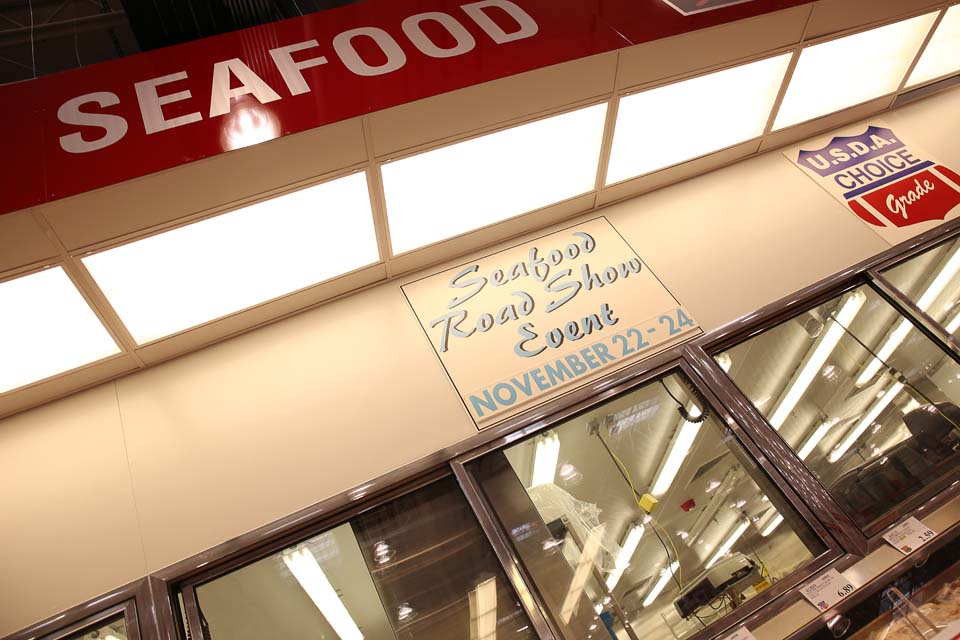 SEAFOOD
U.S.D.A.
CHOICE
Grade
Seafood
Road Show
Event
NOVEMBER 22 - 24
6.89